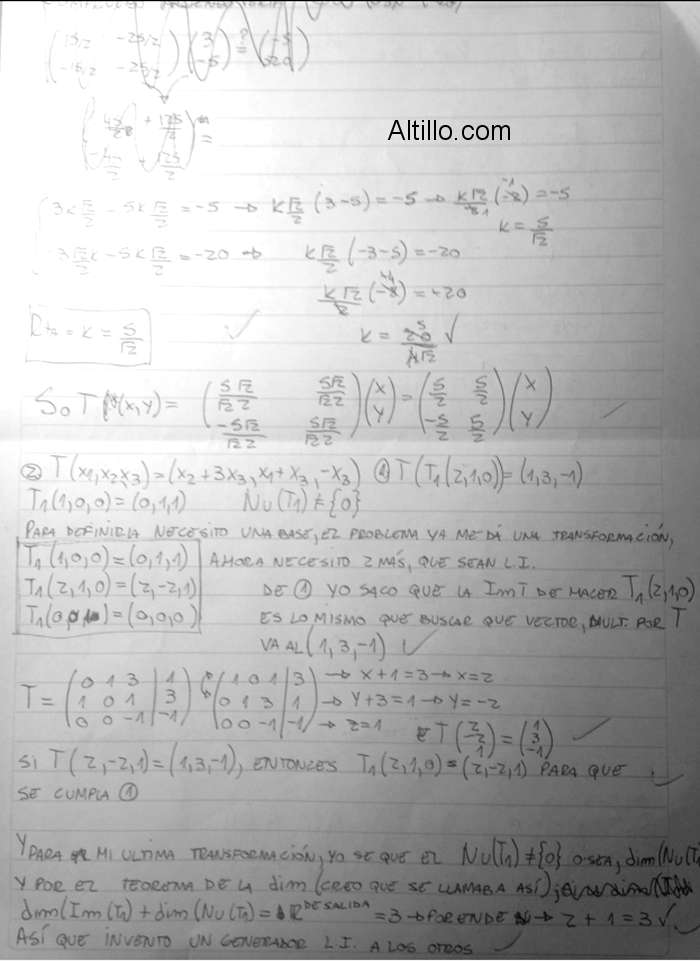 (15/2 -25/2) (3) ?= (-5)
(-15/2 -25/2) (-5) (-20)
Altillo.com
3k√2/2 - 5k√2/2 = -5 → k√2/2 (3-5) = -5 → k√2/2 (-2) = -5
k = 5/√2
3√2/2k - 5k√2/2 = -20 → k√2/2 (-3-5) = -20
k√2/2 (-8) = -20
= k = 5/√2 ✓
k = 20/4√2 ✓
So T (x,y) = (5√2/√2 2 5√2/√2 2) (x) = (5/2 5/2) (x)
(-5√2/√2 2 5√2/√2 2) (y) (-5/2 5/2) (y)
② T(x1,x2,x3) = (x2 + 3x3, x1 + x3, -x3) ① T(T1(2,1,0)) = (1,3,-1)
T1(1,0,0) = (0,1,1) Nu(T1) ≠ {0}
PARA DEFINIRLA NECESITO UNA BASE, EL PROBLEMA YA ME DÁ UNA TRANSFORMACIÓN,
T1(1,0,0) = (0,1,1) AHORA NECESITO 2 MÁS, QUE SEAN L.I.
T1(2,1,0) = (2,-2,1) DE ① YO SACO QUE LA Im T DE HACER T1(2,1,0)
T1(0,0,1) = (0,0,0) ES LO MISMO QUE BUSCAR QUE VECTOR, MULT. POR T
VA AL (1,3,-1) ✓
T = (0 1 3 | 1) (1 0 1 | 3) → x+1=3 → x=2
(1 0 1 | 3) (0 1 3 | 1) → y+3=1 → y=-2
(0 0 -1 | -1) (0 0 -1 | -1) → z=1
T (2 -2 1) = (1 3 -1)
SI T(2,-2,1) = (1,3,-1), ENTONCES T1(2,1,0) = (2,-2,1) PARA QUE
SE CUMPLA ①
Y PARA MI ULTIMA TRANSFORMACIÓN, YO SE QUE EL Nu(T1) ≠ {0} O SEA, dim(Nu(T1
Y POR EL TEOREMA DE LA dim (CREO QUE SE LLAMABA ASÍ),
dim(Im(T1) + dim(Nu(T1) = DE SALIDA = 3 → POR ENDE → 2 + 1 = 3 ✓
ASÍ QUE INVENTO UN GENERADOR L.I. A LOS OTROS